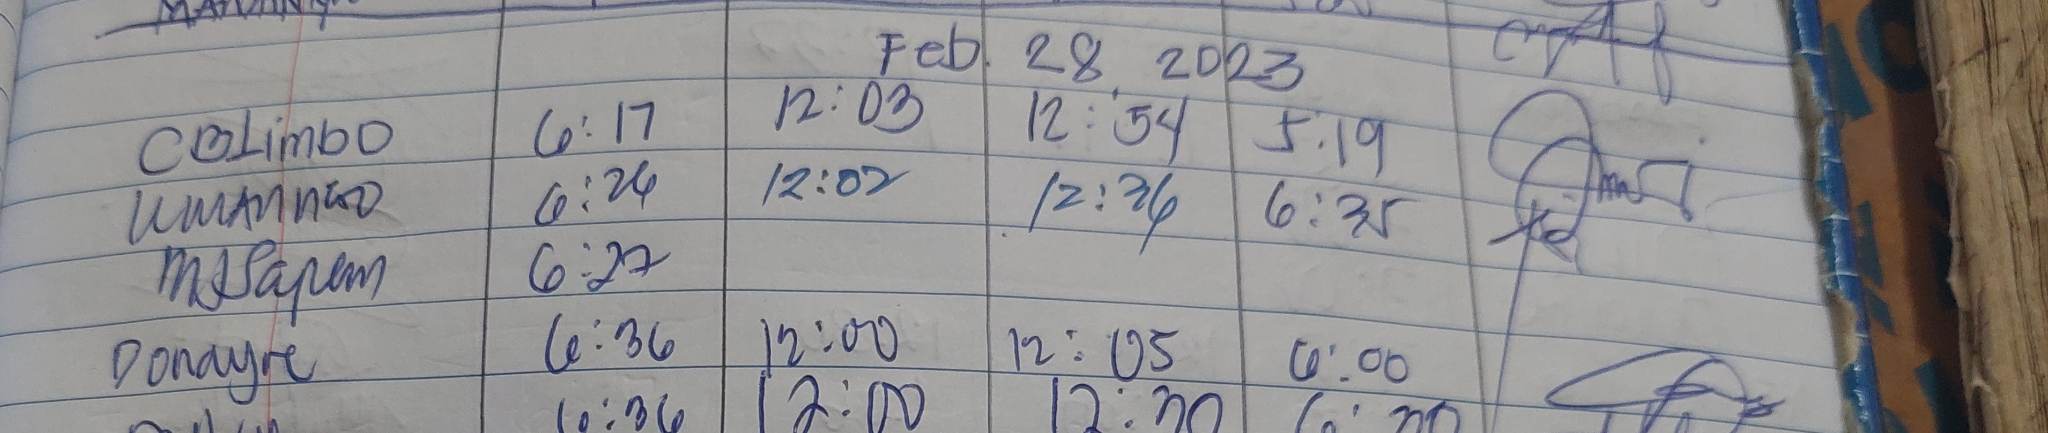 Feb. 28, 2023
Colimbo 6:17 12:03 12:54 5:19
6:26 12:02 12:36 6:35
6:27
Donayre 6:36 12:00 12:05 6:00
6:36 12:00 12:30 6:30